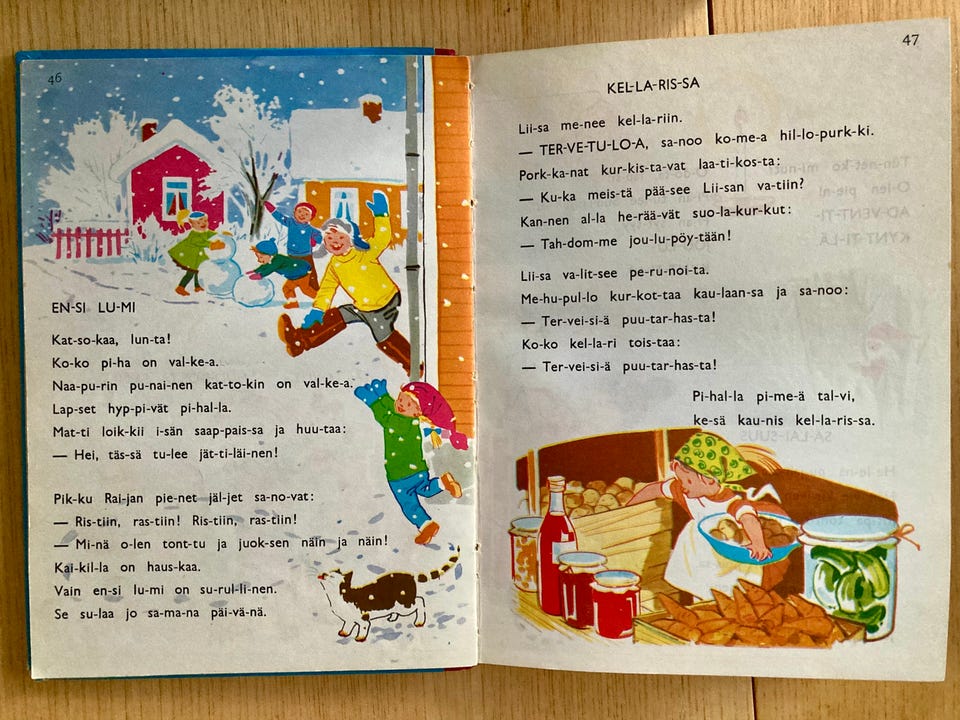 46
EN-SI LU-MI
Kat-so-kaa, lun-ta!
Ko-ko pi-ha on val-ke-a.
Naa-pu-rin pu-nai-nen kat-to-kin on val-ke-a.
Lap-set hyp-pi-vät pi-hal-la.
Mat-ti loik-kii i-sän saap-pais-sa ja huu-taa:
— Hei, täs-sä tu-lee jät-ti-läi-nen!
Pik-ku Rai-jan pie-net jäl-jet sa-no-vat:
— Ris-tiin, ras-tiin! Ris-tiin, ras-tiin!
— Mi-nä o-len tont-tu ja juok-sen näin ja näin!
Kai-kil-la on haus-kaa.
Vain en-si lu-mi on su-rul-li-nen.
Se su-laa jo sa-ma-na päi-vä-nä.
47
KEL-LA-RIS-SA
Lii-sa me-nee kel-la-riin.
— TER-VE-TU-LO-A, sa-noo ko-me-a hil-lo-purk-ki.
Pork-ka-nat kur-kis-ta-vat laa-ti-kos-ta:
— Ku-ka meis-tä pää-see Lii-san va-tiin?
Kan-nen al-la he-rää-vät suo-la-kur-kut:
— Tah-dom-me jou-lu-pöy-tään!
Lii-sa va-lit-see pe-ru-noi-ta.
Me-hu-pul-lo kur-kot-taa kau-laan-sa ja sa-noo:
— Ter-vei-si-ä puu-tar-has-ta!
Ko-ko kel-la-ri tois-taa:
— Ter-vei-si-ä puu-tar-has-ta!
Pi-hal-la pi-me-ä tal-vi,
ke-sä kau-nis kel-la-ris-sa.